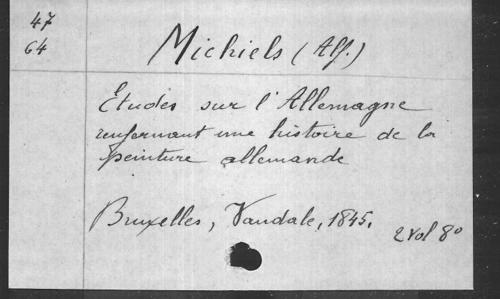 47
64
Michiels (Alf.)
Etudes sur l'Allemagne
renfermant une histoire de la
peinture allemande
Bruxelles, Vandale, 1845.
2 vol 8°